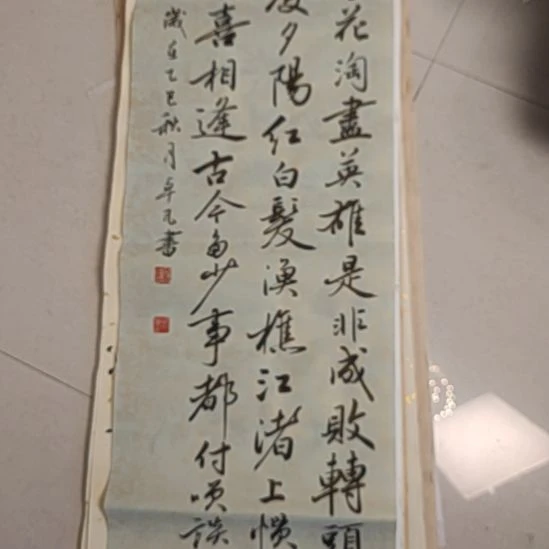 花淘盡英雄是非成敗轉頭
度夕陽紅白髮漁樵江渚上慣
喜相逢古今多少事都付笑談
歲在乙巳秋月卓凡書